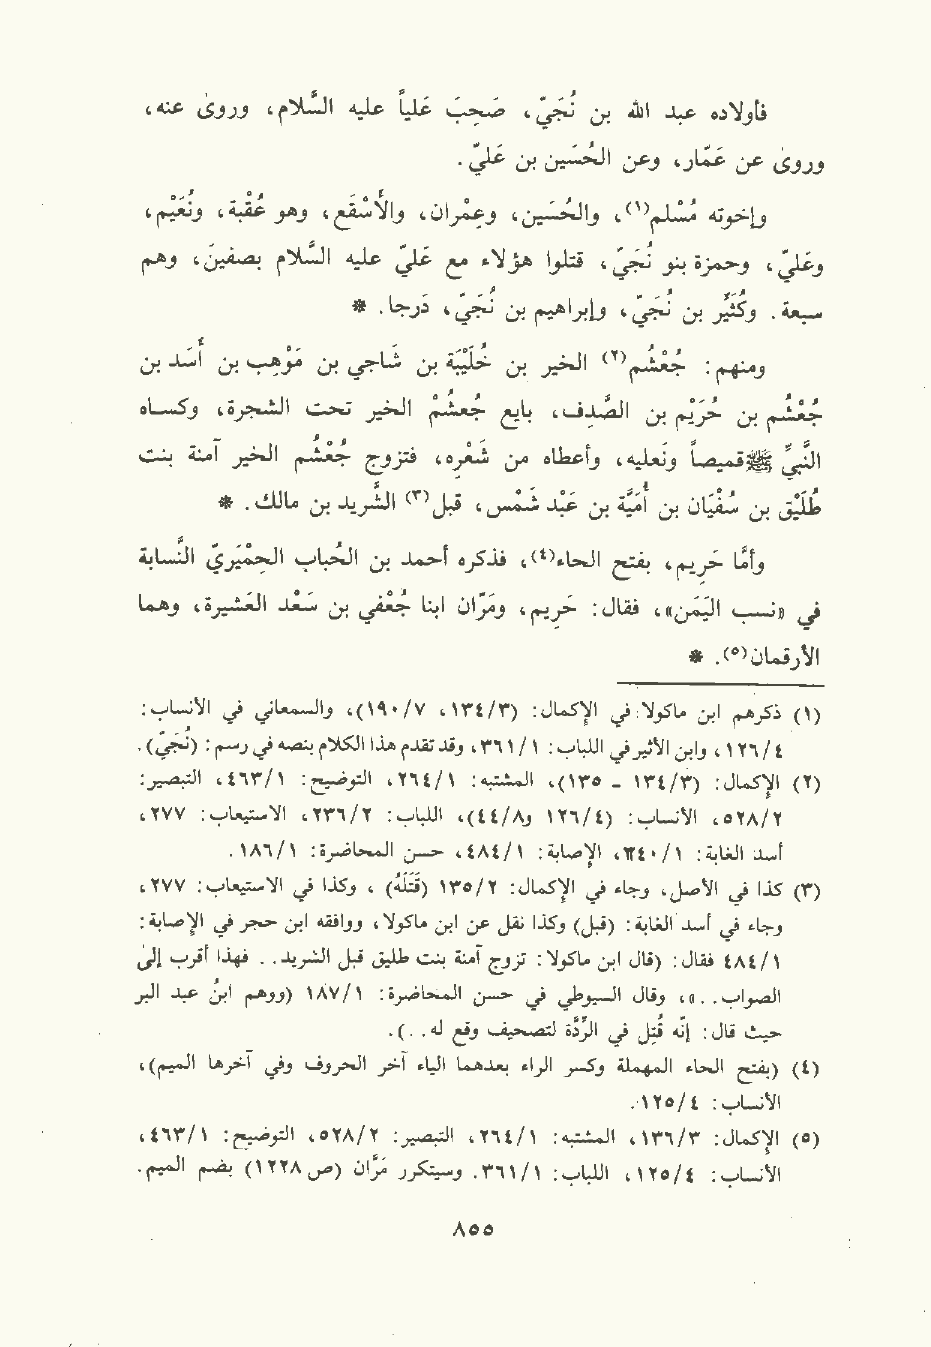 فأولاده عبد الله بن نُجَيّ، صَحِبَ عَلياً عليه السَّلام، وروىٰ عنه،
وروىٰ عن عَمّار، وعن الحُسَين بن عَليّ.
وإخوته مُسْلم(١)، والحُسَين، وعِمْران، والأسْقَع، وهو عُقْبة، ونُعَيْم،
وعَليّ، وحمزة بنو نُجَيّ، قتلوا هؤلاء مع عَليّ عليه السَّلام بصفين، وهم
سبعة. وكُثَيّر بن نُجَيّ، وإبراهيم بن نُجَيّ، دَرجا. *
ومنهم: جُعْشُم(٢) الخير بن خُلَيْبَة بن شاجي بن مَوْهب بن أَسَد بن
جُعْشُم بن حُرَيْم بن الصَّدِف، بايع جُعْشُم الخير تحت الشجرة، وكساه
النَّبيّ ﷺ قميصاً ونَعليه، وأعطاه من شَعْرِه، فتزوج جُعْشُم الخير آمنة بنت
طُلَيْق بن سُفْيَان بن أُمَيَّة بن عَبْد شَمْس، قبل(٣) الشَّريد بن مالك. *
وأمّا خَرِيم، بفتح الحاء(٤)، فذكره أحمد بن الحُباب الحِمْيَريّ النَّسابة
في «نسب اليَمَن»، فقال: خَرِيم، ومَرّان ابنا جُعْفي بن سَعْد العَشيرة، وهما
الأرقمان(٥). *
(١) ذكرهم ابن ماكولا في الإكمال: (١٣٤/٣، ١٩٠/٧)، والسمعاني في الأنساب:
١٢٦/٤، وابن الأثير في اللباب: ٣٦١/١، وقد تقدم هذا الكلام بنصه في رسم: (نُجَيّ).
(٢) الإكمال: (١٣٤/٣ - ١٣٥)، المشتبه: ٢٦٤/١، التوضيح: ٤٦٣/١، التبصير:
٥٢٨/٢، الأنساب: (١٢٦/٤ و٤٤/٨)، اللباب: ٢٣٦/٢، الاستيعاب: ٢٧٧،
أسد الغابة: ٣٤٠/١، الإصابة: ٤٨٤/١، حسن المحاضرة: ١٨٦/١.
(٣) كذا في الأصل، وجاء في الإكمال: ١٣٥/٢ (قَتَلَهُ) ، وكذا في الاستيعاب: ٢٧٧،
وجاء في أسد الغابة: (قبل) وكذا نقل عن ابن ماكولا، ووافقه ابن حجر في الإصابة:
٤٨٤/١ فقال: (قال ابن ماكولا: تزوج آمنة بنت طليق قبل الشريد.. فهذا أقرب إلىٰ
الصواب..»، وقال السيوطي في حسن المحاضرة: ١٨٧/١ (ووهم ابنُ عبد البر
حيث قال: إنّه قُتِل في الرِّدَّة لتصحيف وقع له..).
(٤) (بفتح الحاء المهملة وكسر الراء بعدهما الياء آخر الحروف وفي آخرها الميم)،
الأنساب: ١٢٥/٤.
(٥) الإكمال: ١٣٦/٣، المشتبه: ٢٦٤/١، التبصير: ٥٢٨/٢، التوضيح: ٤٦٣/١،
الأنساب: ١٢٥/٤، اللباب: ٣٦١/١. وسيتكرر مَرّان (ص ١٢٢٨) بضم الميم.
٨٥٥